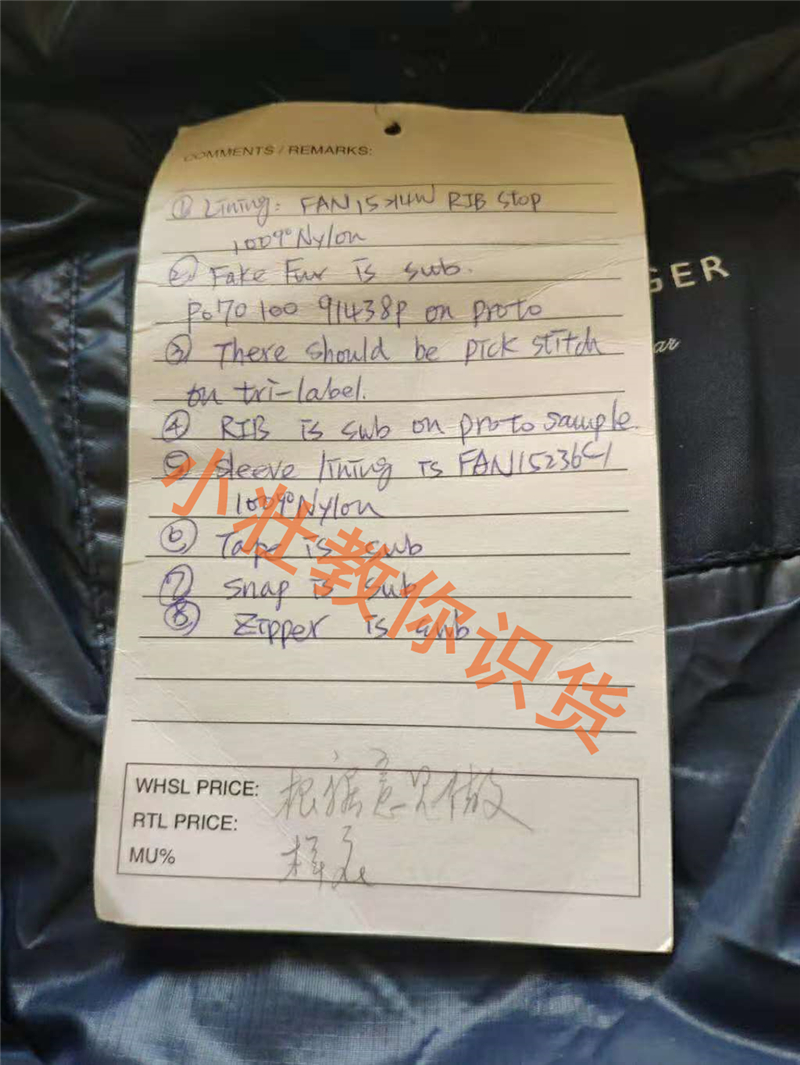 COMMENTS / REMARKS:
① Lining: FAN15214W RIB Stop
100% Nylon
② Fake Fur is sub.
P070100 91438P on proto
③ There should be pick stitch
on tri-label.
④ RIB is sub on proto sample.
⑤ Sleeve lining is FAN15236C1
100% Nylon
⑥ Tape is sub
⑦ Snap is sub
⑧ Zipper is sub
WHSL PRICE: 根据意见做
RTL PRICE:
MU% 样衣
GER
ar
小壮教你识货